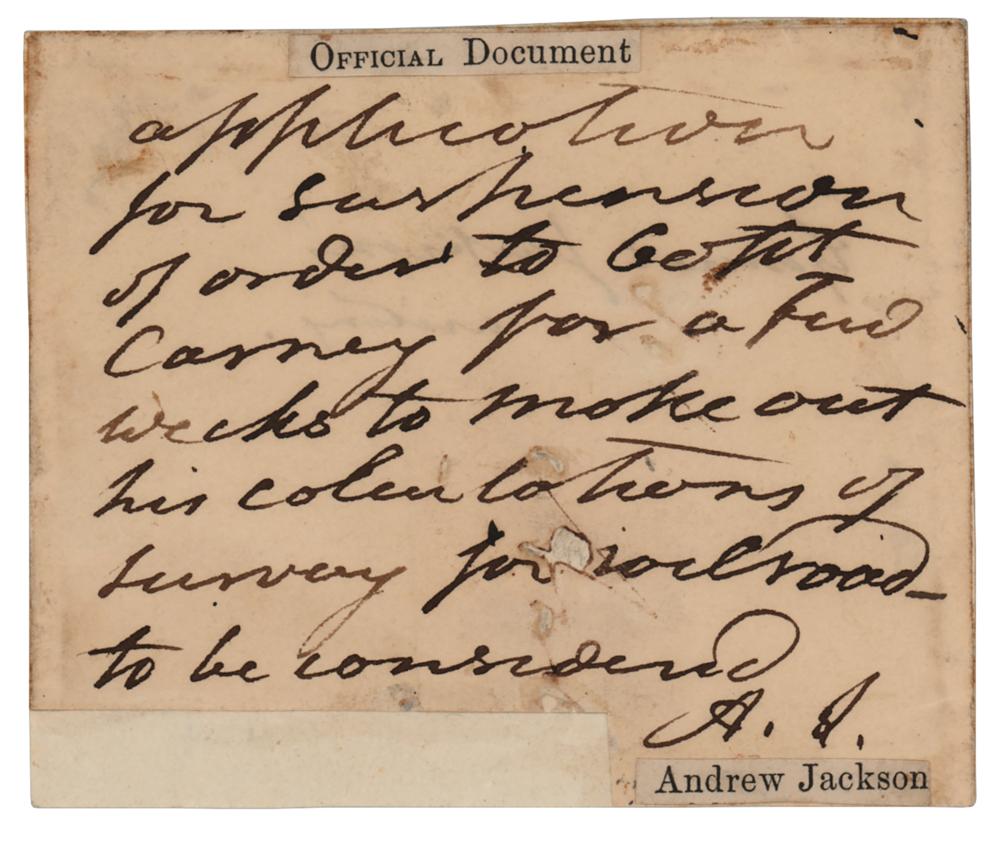 OFFICIAL Document
application
for suspension
of order to Capt
Carney for a few
weeks to make out
his calculations of
survey for railroad
to be considered
A. J.
Andrew Jackson